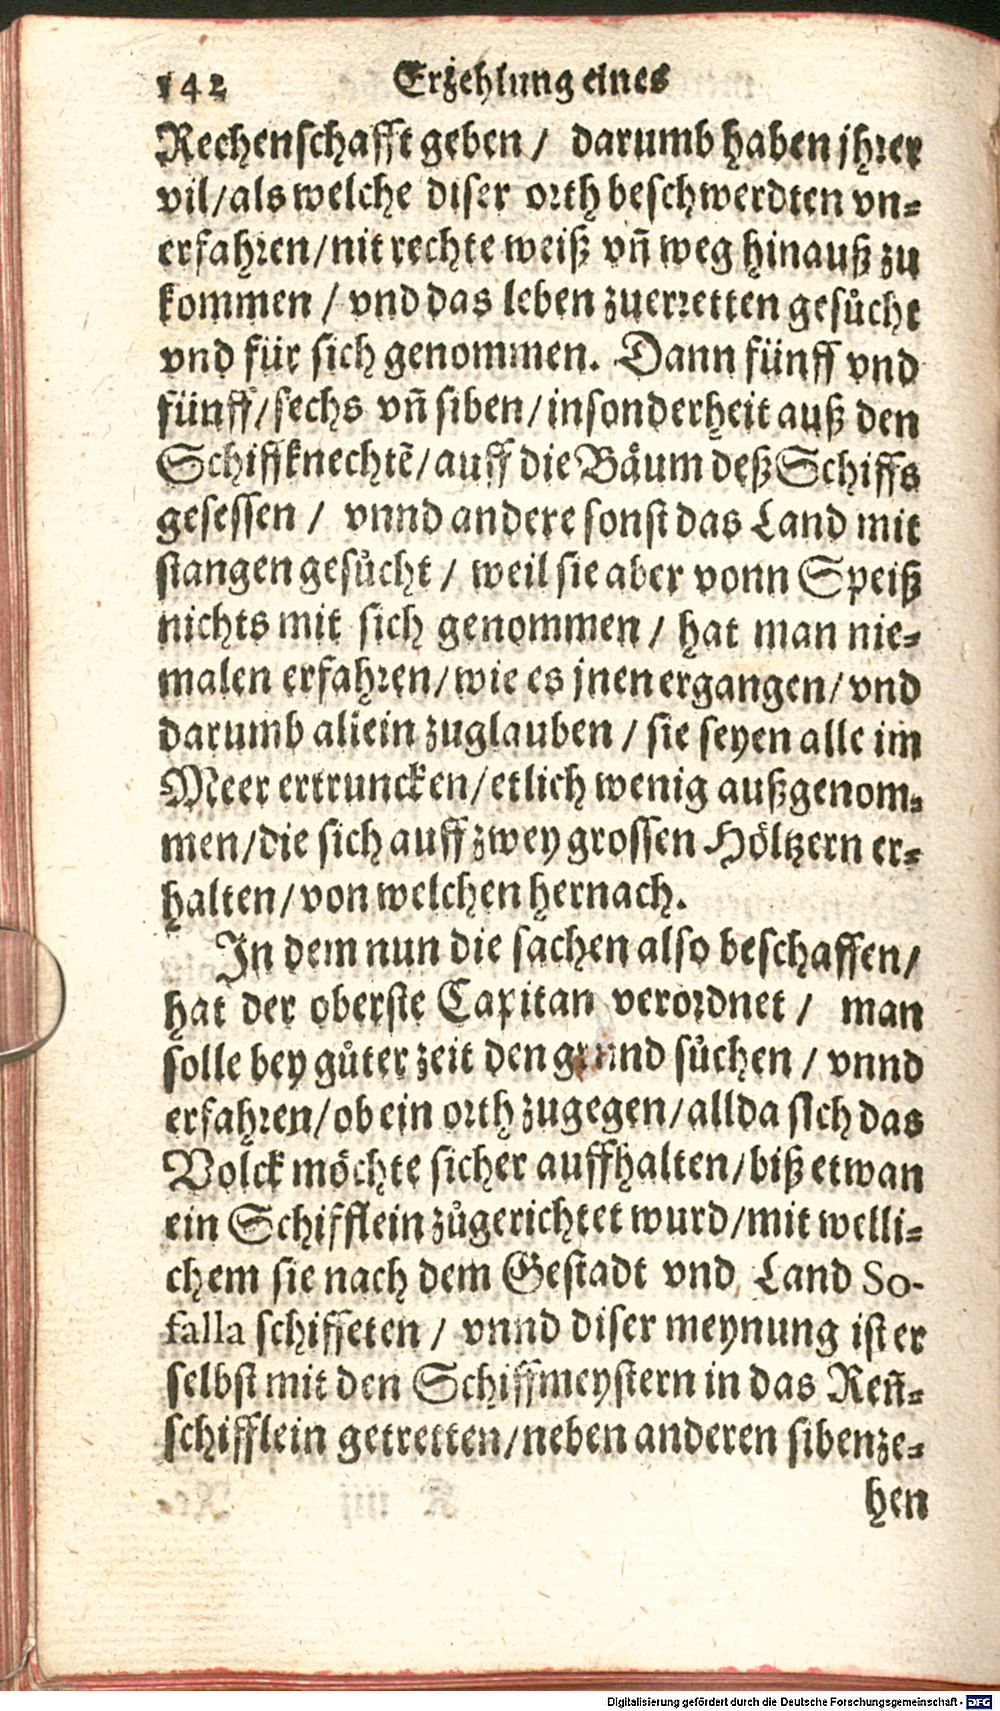 142 Erzehlung eines
Rechenschafft geben / darumb haben jhrer
vil/als welche diser orth beschwerdten vn-
erfahren/nit rechte weiß vñ weg hinauß zu
kommen / vnd das leben zuerretten gesůcht
vnd für sich genommen. Dann fünff vnd
fünff/sechs vñ siben/insonderheit auß den
Schiffknechtẽ/auff die Bäum deß Schiffs
gesessen / vnnd andere sonst das Land mit
stangen gesůcht / weil sie aber vonn Speiß
nichts mit sich genommen / hat man nie-
malen erfahren/wie es jnen ergangen/vnd
darumb allein zuglauben / sie seyen alle im
Meer ertruncken/etlich wenig außgenom-
men/die sich auff zwey grossen Höltzern er-
halten/von welchen hernach.
In dem nun die sachen also beschaffen/
hat der oberste Capitan verordnet / man
solle bey gůter zeit den grund sůchen / vnnd
erfahren/ob ein orth zugegen/allda sich das
Volck möchte sicher auffhalten/biß etwan
ein Schifflein zůgerichtet wurd/mit welli-
chem sie nach dem Gestadt vnd Land So-
falla schiffeten / vnnd diser meynung ist er
selbst mit den Schiffmeystern in das Reñ-
schifflein getretten/neben anderen sibenze-
hen
Digitalisierung gefördert durch die Deutsche Forschungsgemeinschaft - DFG